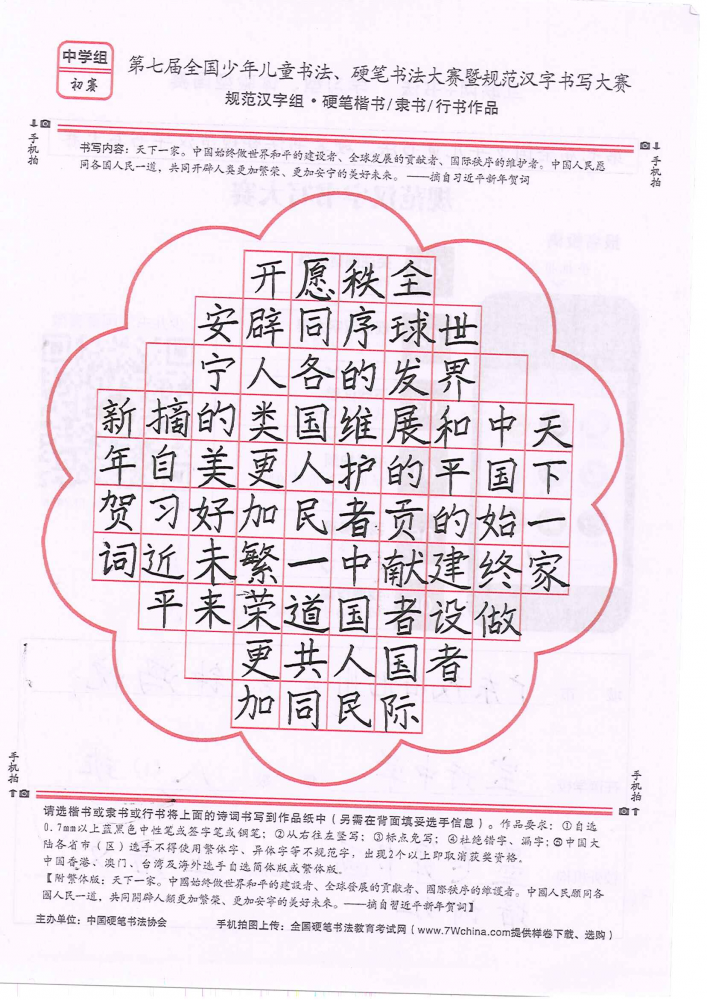 中学组
初赛
第七届全国少年儿童书法、硬笔书法大赛暨规范汉字书写大赛
规范汉字组·硬笔楷书/隶书/行书作品
手机拍
手机拍
书写内容：天下一家。中国始终做世界和平的建设者、全球发展的贡献者、国际秩序的维护者。中国人民愿
同各国人民一道，共同开辟人类更加繁荣、更加安宁的美好未来。——摘自习近平新年贺词
天下一家
中国始终做
世界和平的建设者
全球发展的贡献者国际
秩序的维护者中国人民
愿同各国人民一道共同
开辟人类更加繁荣更加
安宁的美好未来
摘自习近平
新年贺词
手机拍
手机拍
请选楷书或隶书或行书将上面的诗词书写到作品纸中（另需在背面填妥选手信息）。作品要求：①自选
0.7mm以上蓝黑色中性笔或签字笔或钢笔；②从右往左竖写；③标点免写；④杜绝错字、漏字；⑤中国大
陆各省市（区）选手不得使用繁体字、异体字等不规范字，出现2个以上即取消获奖资格。
中国香港、澳门、台湾及海外选手自选简体版或繁体版。
【附繁体版：天下一家。中國始終做世界和平的建設者、全球發展的貢獻者、國際秩序的維護者。中國人民願同各
國人民一道，共同開辟人類更加繁榮、更加安寧的美好未來。——摘自習近平新年賀詞】
主办单位：中国硬笔书法协会 手机拍图上传：全国硬笔书法教育考试网（www.7Wchina.com提供样卷下载、选购）